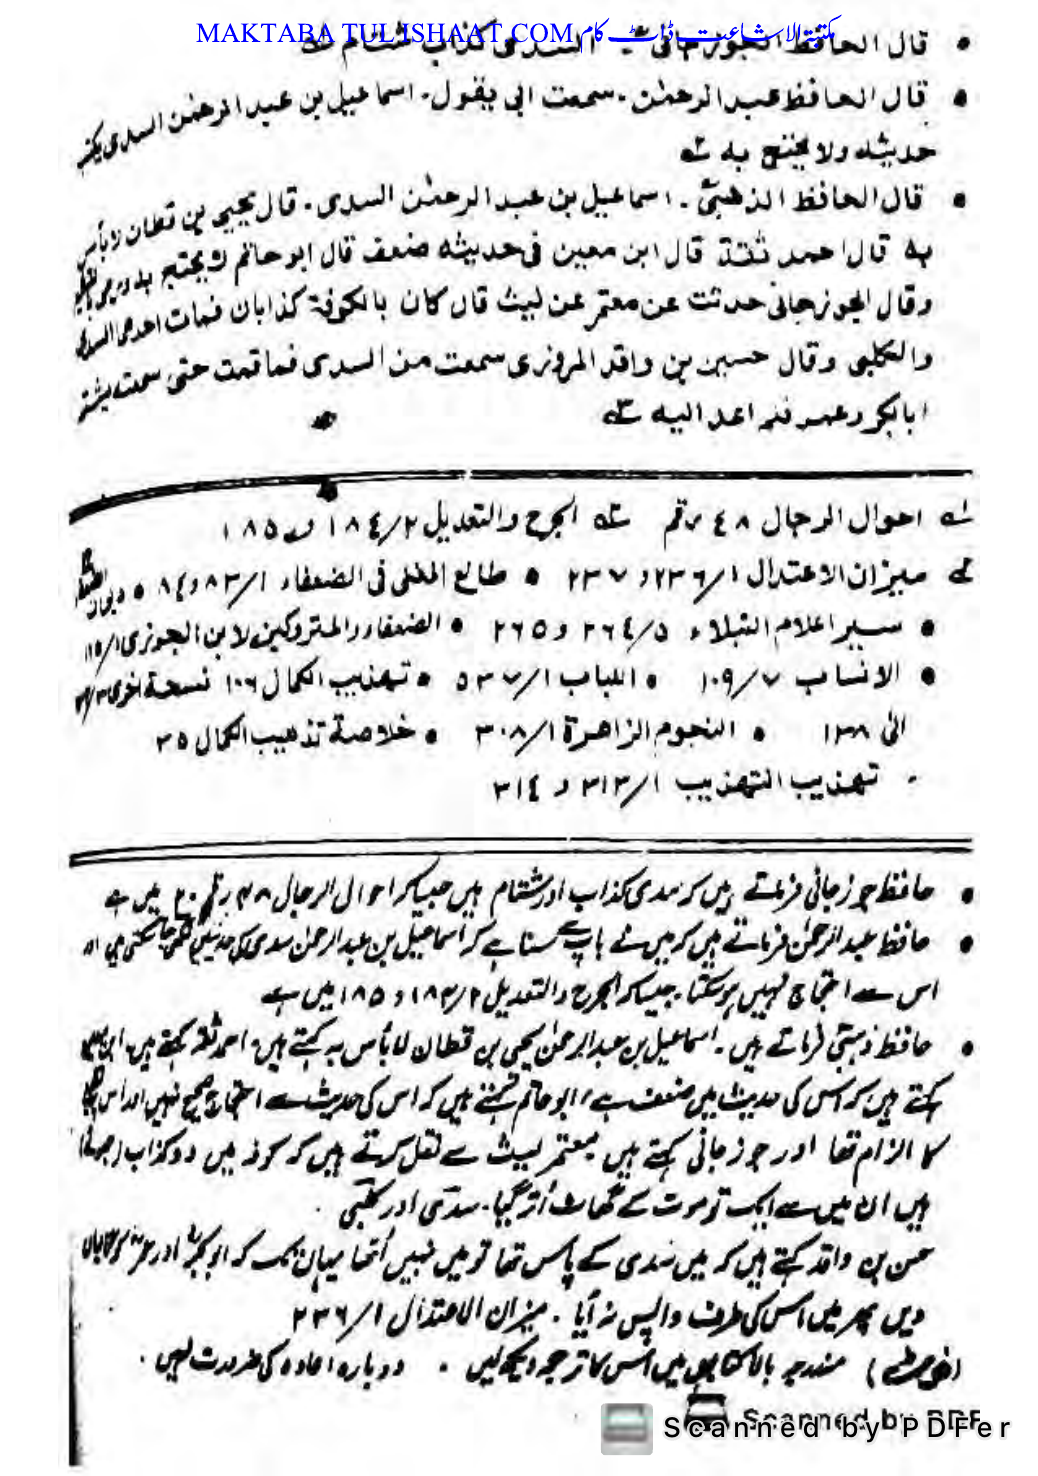 MAKTABA TUL ISHAAT.COM مکتبۃ الاشاعت ڈاٹ کام
• قال الحافظ الجوزجانی السدی کذاب شتام لہ
• قال الحافظ عبدالرحمٰن۔ سمعت ابی یقول۔ اسماعیل بن عبدالرحمٰن السدی یکتب
حدیثہ ولا یحتج بہ ۲ہ
• قال الحافظ الذھبیؒ۔ اسماعیل بن عبدالرحمٰن السدی۔ قال یحییٰ بن قطان لا بأس
بہ قال احمد ثقۃ قال ابن معین فی حدیثہ ضعف قال ابو حاتم لا یحتج بہ
وقال الجوزجانی حدثت عن معتمر عن لیث قال کان بالکوفۃ کذابان فمات احدھما السدی
والکلبی وقال حسین بن واقد المروزی سمعت من السدی فما قمت حتی سمعت یشتم
ابابکر وعمر فلم اعد الیہ ۳ہ
۱ہ احوال الرجال ٤٨ رقم ۲ہ الجرح والتعدیل ۲/۱۸٤ و ۱۸۵
۳ہ میزان الاعتدال ۱/۲۳۶ و ۲۳۷ • طالع المغنی فی الضعفاء ۱/۸۳ و ۸٤ • دیوان الضعفاء
• سیر اعلام النبلاء ۵/۲۶٤ و ۲۶۵ • الضعفاء والمتروکین لابن الجوزی ۱/۱۱۵
• الانساب ۷/۱۰۹ • اللباب ۱/۵۳۷ • تہذیب الکمال ۱۰۶ نسخۃ اخری
الی ۱۳۸ • النجوم الزاھرۃ ۱/۳۰۸ • خلاصۃ تذھیب الکمال ۳۵
• تہذیب التہذیب ۱/۳۱۳ و ۳۱٤
• حافظ جوزجانی فرماتے ہیں کہ سدی کذاب اور شتام ہیں جیسا کہ احوال الرجال ۴۸ رقم ۲۰ میں ہے
• حافظ عبدالرحمٰن فرماتے ہیں کہ میں نے باپ سے سنا ہے کہ اسماعیل بن عبدالرحمٰن سدی کی حدیثیں لکھی جا سکتی ہیں اور
اس سے احتجاج نہیں ہوسکتا۔ جیسا کہ الجرح والتعدیل ۲/۱۸۴ و ۱۸۵ میں ہے
• حافظ ذہبیؒ فرماتے ہیں۔ اسماعیل بن عبدالرحمٰن یحییٰ بن قطان لا بأس بہ کہتے ہیں، احمد ثقہ کہتے ہیں، ابن معین
کہتے ہیں کہ اس کی حدیث میں ضعف ہے، ابو حاتم کہتے ہیں کہ اس کی حدیث سے احتجاج صحیح نہیں اور اس
کا الزام تھا اور جوزجانی کہتے ہیں معتمر لیث سے نقل کرتے ہیں کہ کوفہ میں دو کذاب (جھوٹے)
ہیں ان میں سے ایک تو موت کے گھاٹ اُتر گیا۔ سدّی اور کلبی۔
حسن بن واقد کہتے ہیں کہ میں سدی کے پاس تھا تو میں نہیں اُٹھا یہاں تک کہ ابوبکرؓ اور عمرؓ کو گالیاں
دیں پھر میں اس کی طرف واپس نہ آیا۔ میزان الاعتدال ۱/۲۳۶
(نوٹ) مندرجہ بالا کتابوں میں اس کا ترجمہ دیکھ لیں۔ دوبارہ اعادہ کی ضرورت نہیں۔
Scanned by PDFer